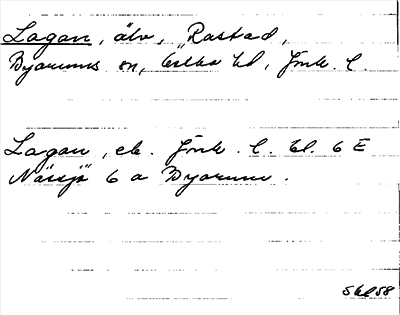 Lagan, älv, "Rastad,
Byarums sn, Östbo hd, Jönk. l.
Lagan, ek. Jönk. l. bl. 6 E
Nässjö 6 a Byarum.
Skl 58